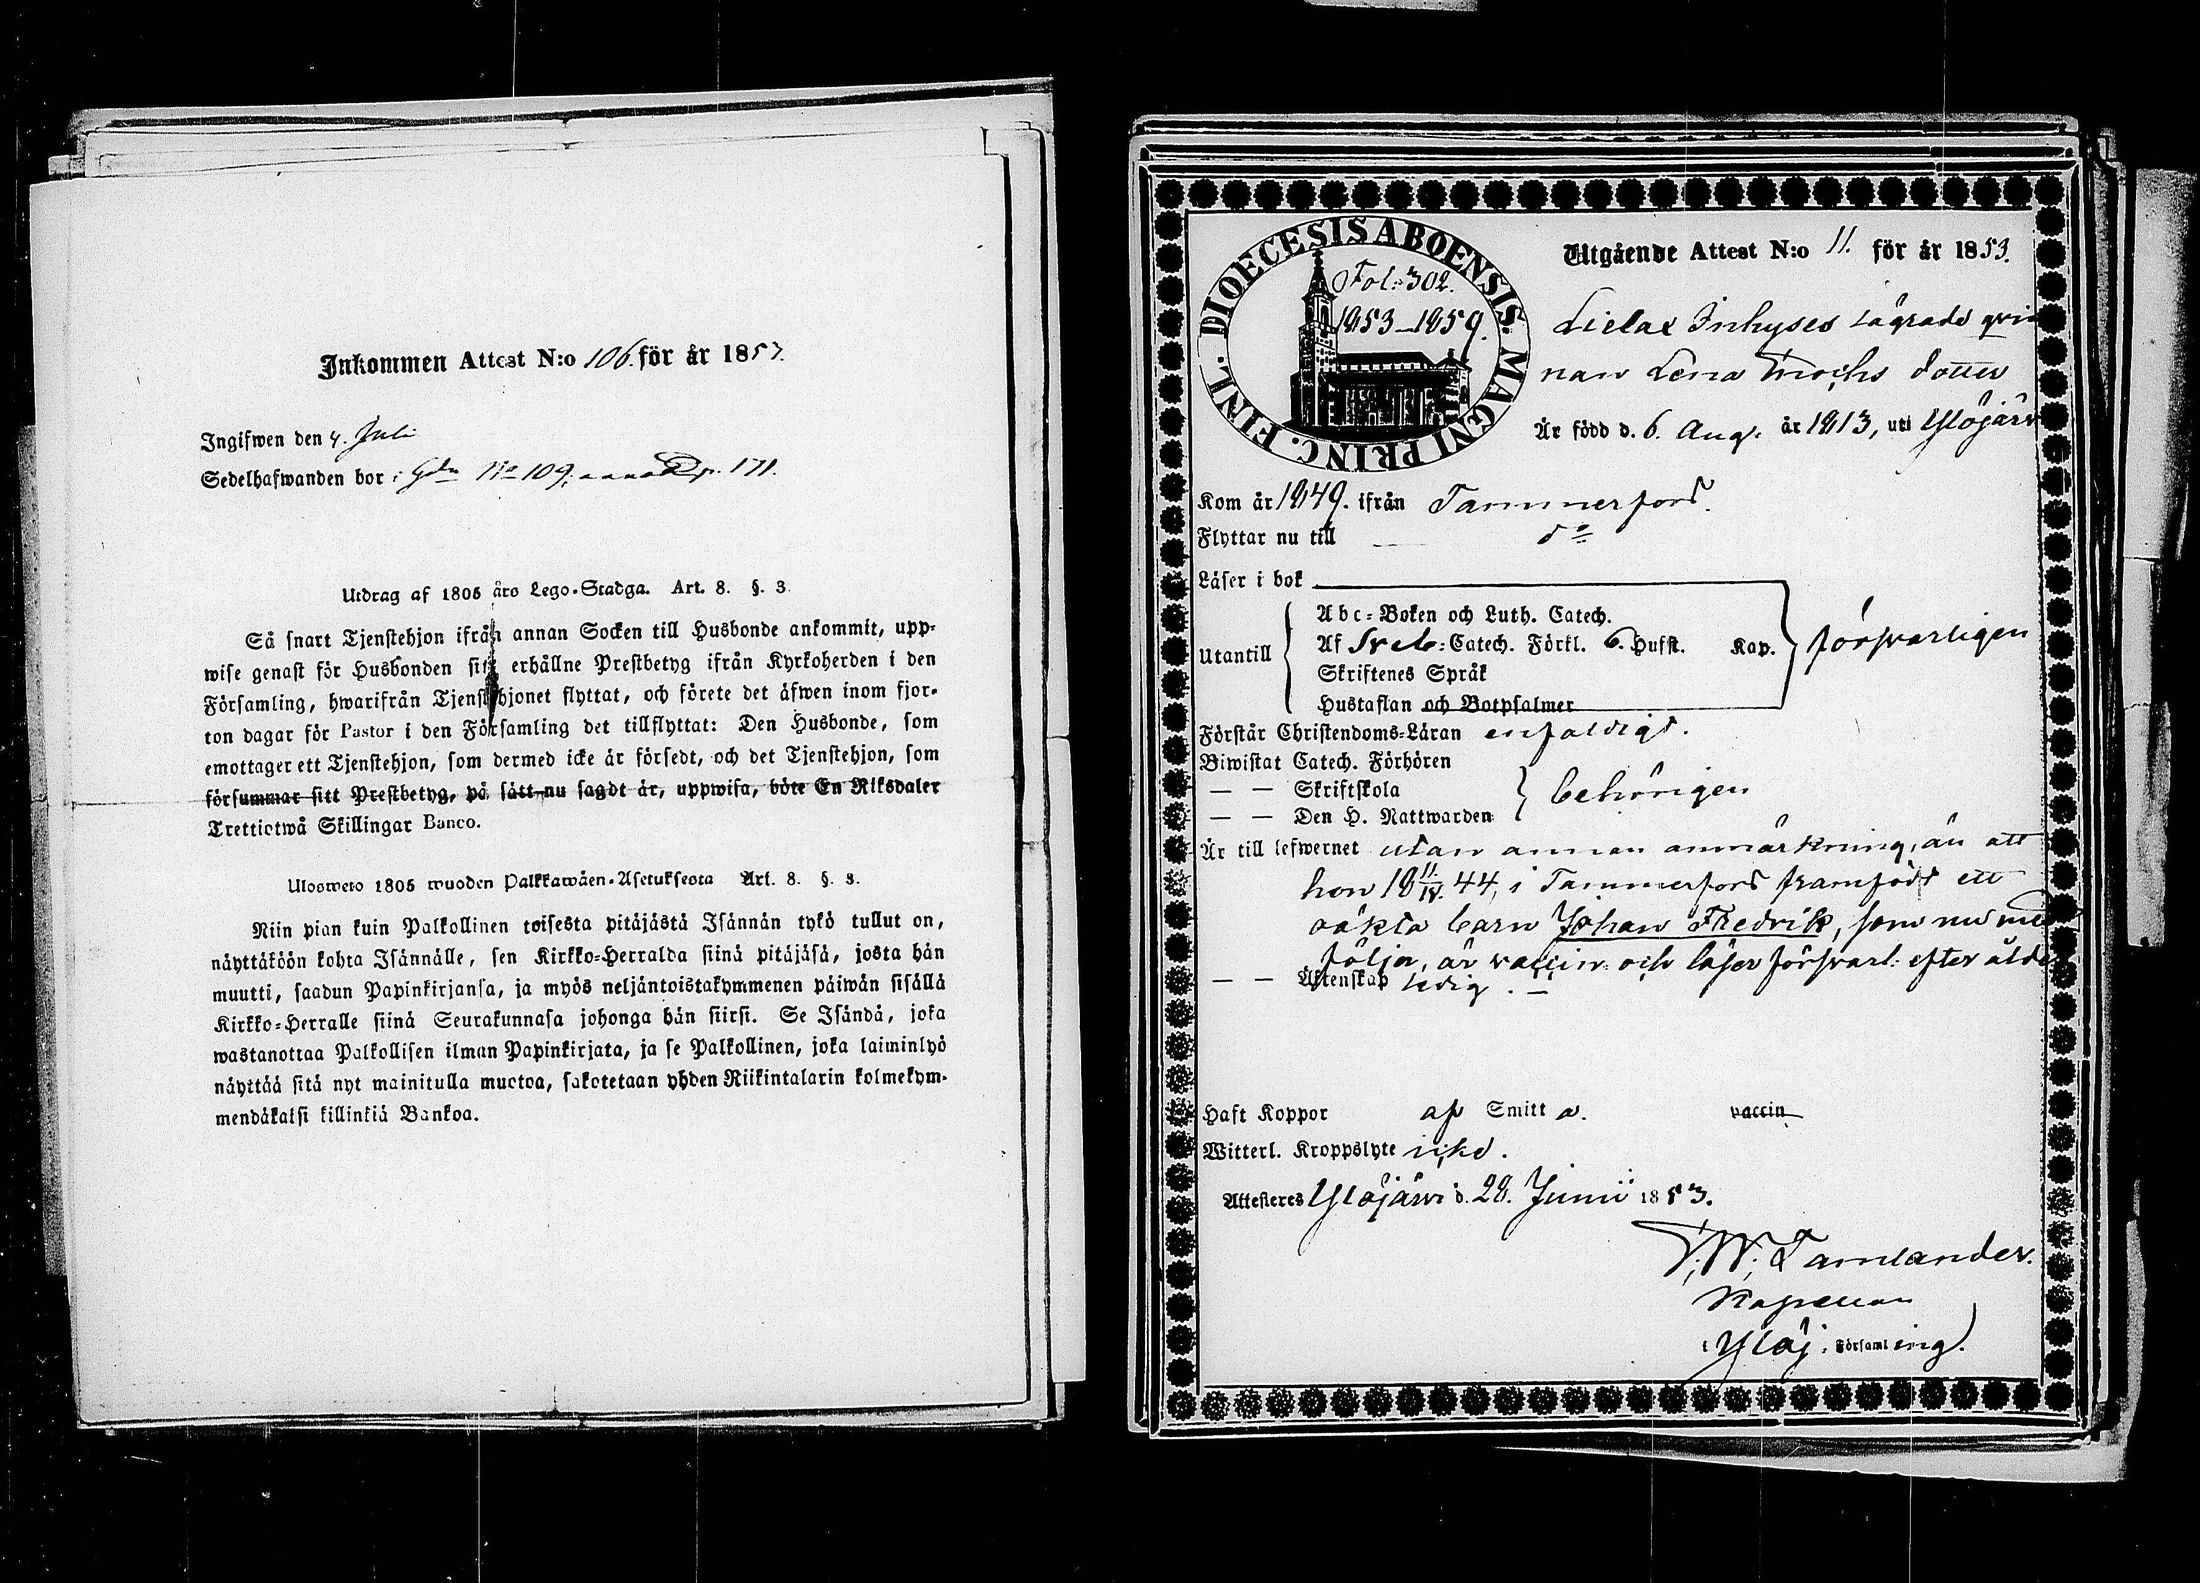 Inkommen Attest N:o 106. för år 1853.
Ingifwen den 4. Juli
Sedelhafwanden bor i Gdn No 109, p. 171.
Utdrag af 1805 års Lego-Stadga. Art. 8. §. 3.
Så snart Tjenstehjon ifrån annan Socken till Husbonde ankommit, upp-
wise genast för Husbonden sitt erhållne Prestbetyg ifrån Kyrkoherden i den
Församling, hwarifrån Tjenstehjonet flyttat, och förete det äfwen inom fjor-
ton dagar för Pastor i den Församling det tillflyttat: Den Husbonde, som
emottager ett Tjenstehjon, som dermed icke är försedt, och det Tjenstehjon, som
försummar sitt Prestbetyg, på sätt nu sagdt är, uppwisa, böte En Riksdaler
Trettiotwå Skillingar Banco.
Ulosweto 1805 wuoden Palkkawäen-Asetuksesta Art. 8. §. 3.
Niin pian kuin Palkollinen toisesta pitäjästä Isännän tykö tullut on,
näyttäköön kohta Isännälle, sen Kirkko-Herralda siinä pitäjäsä, josta hän
muutti, saadun Papinkirjansa, ja myös neljäntoistakymmenen päiwän sisällä
Kirkko-Herralle siinä Seurakunnasa johonga hän siirsi. Se Isändä, joka
wastanottaa Palkollisen ilman Papinkirjata, ja se Palkollinen, joka laiminlyö
näyttää sitä nyt mainitulla muotoa, sakotetaan yhden Riikintalarin kolmekym-
mendäkaksi killinkiä Bankoa.
DIOECESIS ABOENSIS. MAGNI PRINC. FINL.
Fol: 302.
1853–1859.
Utgående Attest N:o 11. för år 1853.
Lielax Inhyses lägrade qvin
nan Lena Enochs dotter
År född d. 6. Aug. år 1813, uti Ylöjärvi
Kom år 1849. ifrån Tammerfors.
Flyttar nu till — do
Läser i bok
Utantill
Abc-Boken och Luth. Catech.
Af Sveb: Catech. Förkl. 6. Hufst. Kap.
Skriftenes Språk
Hustaflan och Botpsalmer
försvarligen
Förstår Christendoms-Läran enfaldigt.
Biwistat Catech. Förhören
— — Skriftskola
— — Den H. Nattwarden
behörigen
Är till lefwernet utan annan anmärkning, än att
hon 18 11/IV. 44, i Tammerfors framfödt ett
oäkta barn Johan Fredrik, som nu med
följer, är vaccin: och läser försvarl: efter ålder
— — Äktenskap ledig. —
Haft Koppor af Smitta. vaccin
Witterl. Kroppslyte icke.
Attesteres Ylöjärvi d. 28. Junii 1853.
Tamlander.
Kapellan
i Ylöj. Församling.